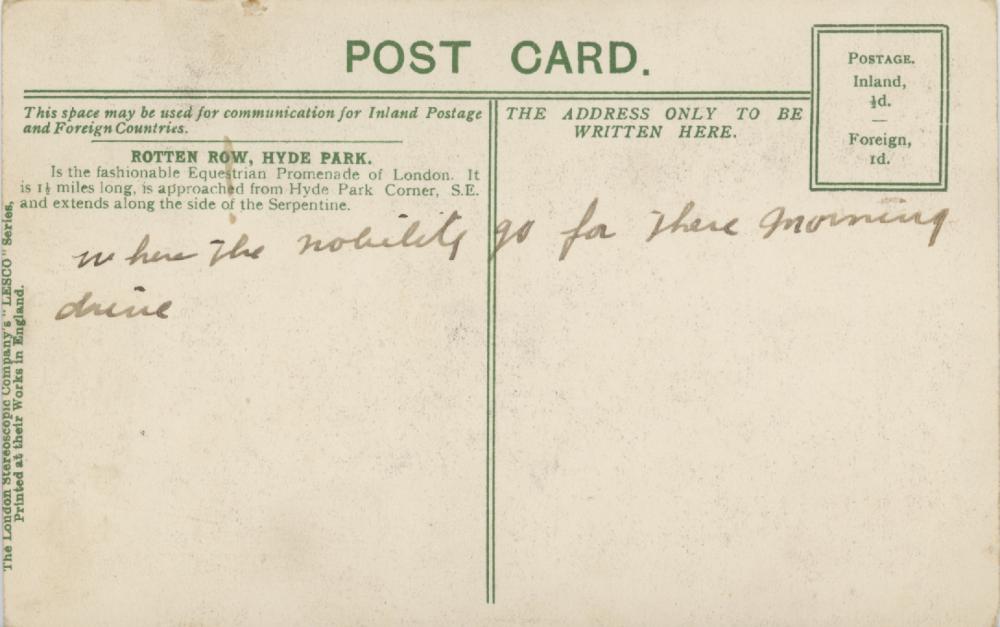 POST CARD.
POSTAGE.
Inland,
½d.
—
Foreign,
1d.
This space may be used for communication for Inland Postage
and Foreign Countries.
THE ADDRESS ONLY TO BE
WRITTEN HERE.
ROTTEN ROW, HYDE PARK.
Is the fashionable Equestrian Promenade of London. It
is 1½ miles long, is approached from Hyde Park Corner, S.E.
and extends along the side of the Serpentine.
where the nobility go for there morning
drive
The London Stereoscopic Company's "LESCO" Series.
Printed at their Works in England.